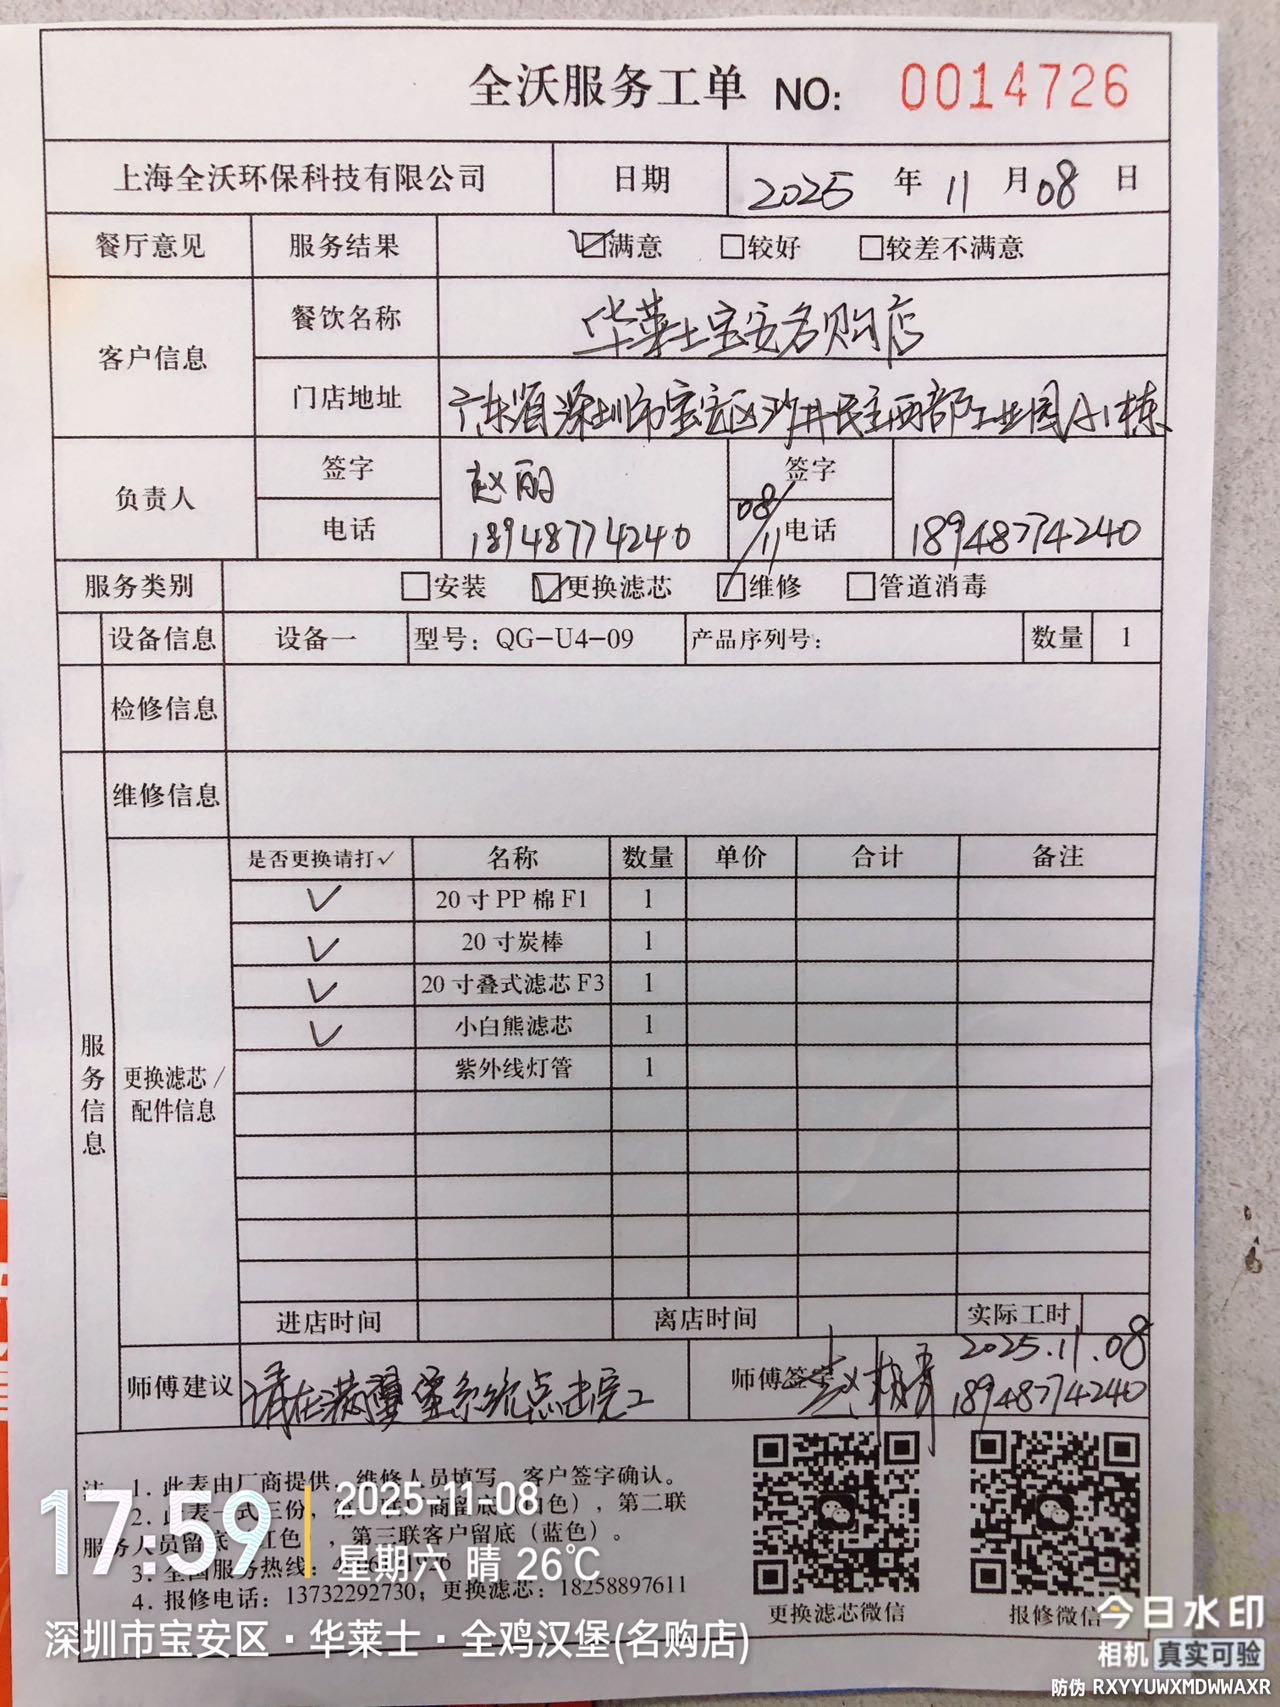 全沃服务工单 NO: 0014726
上海全沃环保科技有限公司 日期 2025 年 11 月 08 日
餐厅意见 服务结果 ☑满意 □较好 □较差不满意
客户信息 餐饮名称 华莱士宝安名购店
门店地址 广东省深圳市宝安区沙井民主西部工业园A1栋
负责人 签字 赵丽 签字
电话 18948774240 08/11 电话 18948774240
服务类别 □安装 ☑更换滤芯 ☑维修 □管道消毒
设备信息 设备一 型号：QG-U4-09 产品序列号： 数量 1
检修信息
维修信息
服务信息
更换滤芯/配件信息
是否更换请打✓ 名称 数量 单价 合计 备注
✓ 20寸PP棉F1 1
✓ 20寸炭棒 1
✓ 20寸叠式滤芯F3 1
✓ 小白熊滤芯 1
紫外线灯管 1
进店时间 离店时间 实际工时
师傅建议 请在 堡系统点击完工 师傅签字 赵 2025.11.08
18948774240
注 1. 此表由厂商提供，维修人员填写，客户签字确认。
2. 此表一式三份，第 商留底（白色），第二联
服务人员留底 红色 ，第三联客户留底（蓝色）。
3. 全国服务热线：
4. 报修电话：13732292730；更换滤芯：18258897611
更换滤芯微信 报修微信
17:59 2025-11-08
星期六 晴 26℃
深圳市宝安区·华莱士·全鸡汉堡(名购店)
今日水印
相机 真实可验
防伪 RXYYUWXMDWWAXR